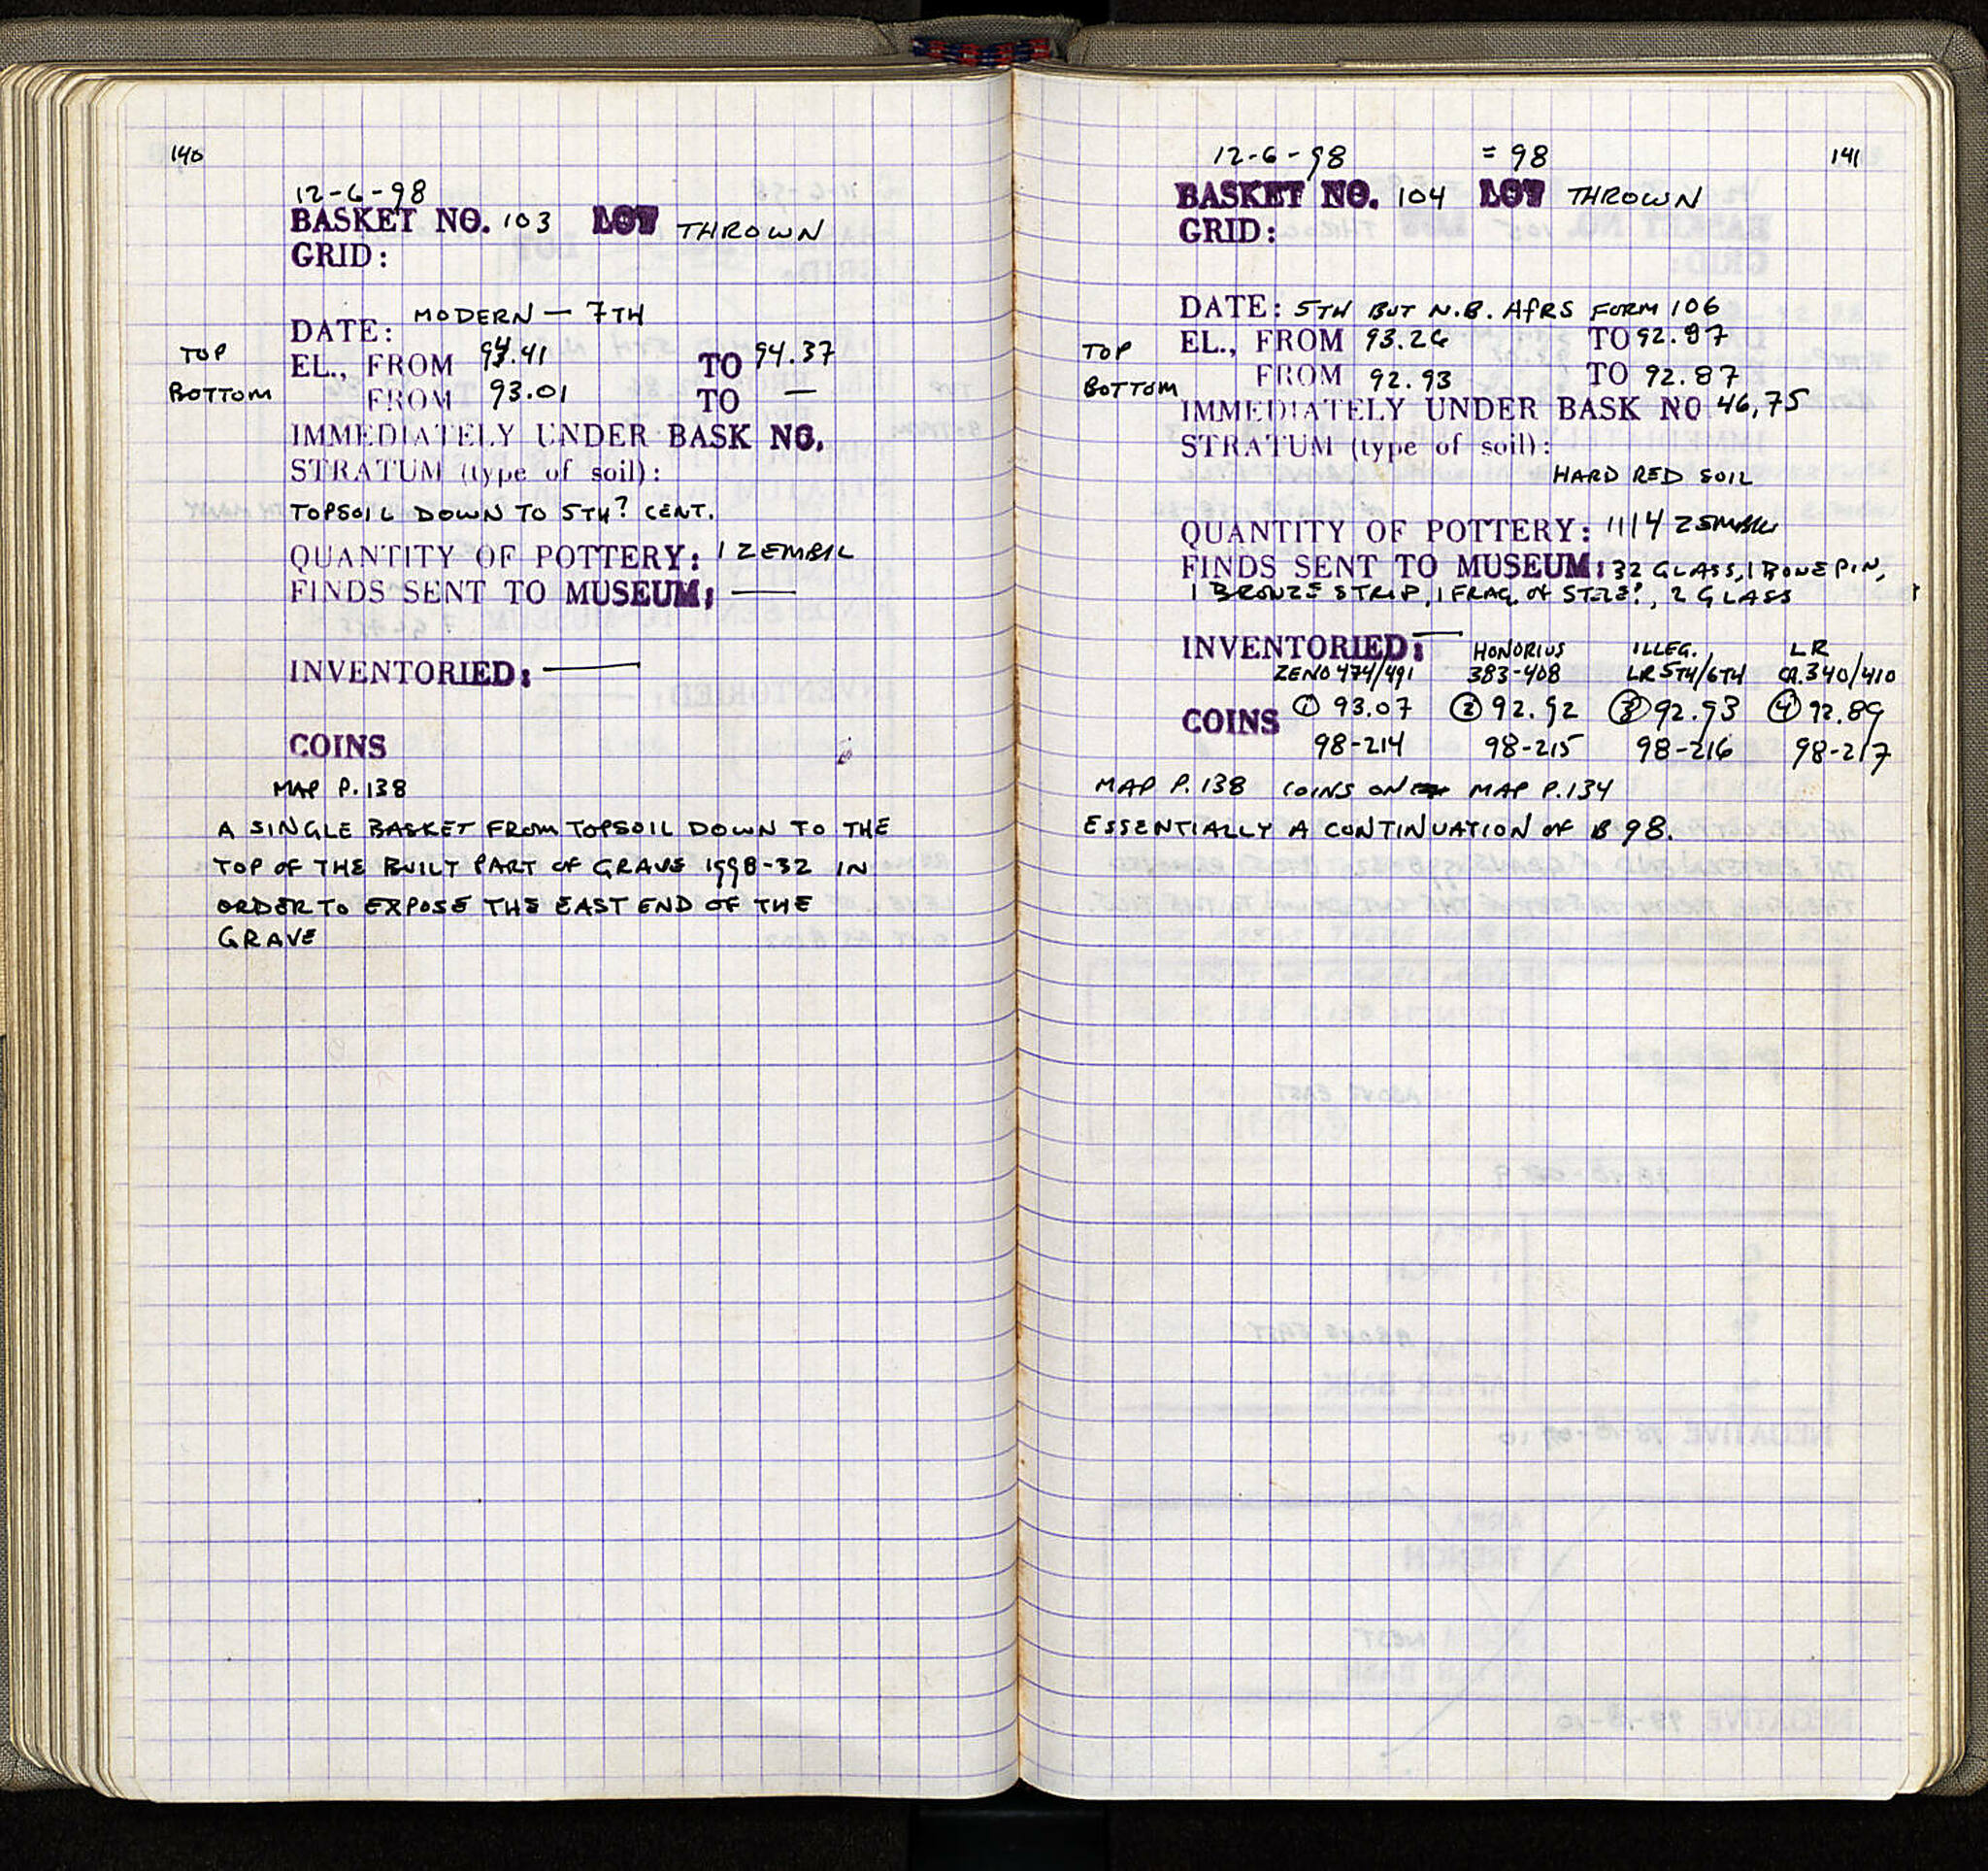 140
12-6-98
BASKET NO. 103 LOT THROWN
GRID:
DATE: MODERN — 7TH
TOP EL., FROM 94.41 TO 94.37
BOTTOM FROM 93.01 TO —
IMMEDIATELY UNDER BASK NO.
STRATUM (type of soil):
TOPSOIL DOWN TO 5TH? CENT.
QUANTITY OF POTTERY: 1 ZEMBIL
FINDS SENT TO MUSEUM: —
INVENTORIED: —
COINS
MAP P.138
A SINGLE BASKET FROM TOPSOIL DOWN TO THE
TOP OF THE BUILT PART OF GRAVE 1998-32 IN
ORDER TO EXPOSE THE EAST END OF THE
GRAVE
12-6-98 = 98 141
BASKET NO. 104 LOT THROWN
GRID:
DATE: 5TH BUT N.B. AfRS FORM 106
TOP EL., FROM 93.26 TO 92.97
BOTTOM FROM 92.93 TO 92.87
IMMEDIATELY UNDER BASK NO 46,75
STRATUM (type of soil):
HARD RED SOIL
QUANTITY OF POTTERY: 1 1/4 ZEMBIL
FINDS SENT TO MUSEUM: 32 GLASS, 1 BONE PIN,
1 BRONZE STRIP, 1 FRAG. OF STELE?, 2 GLASS
INVENTORIED: — HONORIUS ILLEG. LR
ZENO 474/491 383-408 LR 5TH/6TH CA.340/410
COINS ① 93.07 ② 92.92 ③ 92.93 ④ 92.89
98-214 98-215 98-216 98-217
MAP P.138 COINS ON MAP P.134
ESSENTIALLY A CONTINUATION OF B 98.